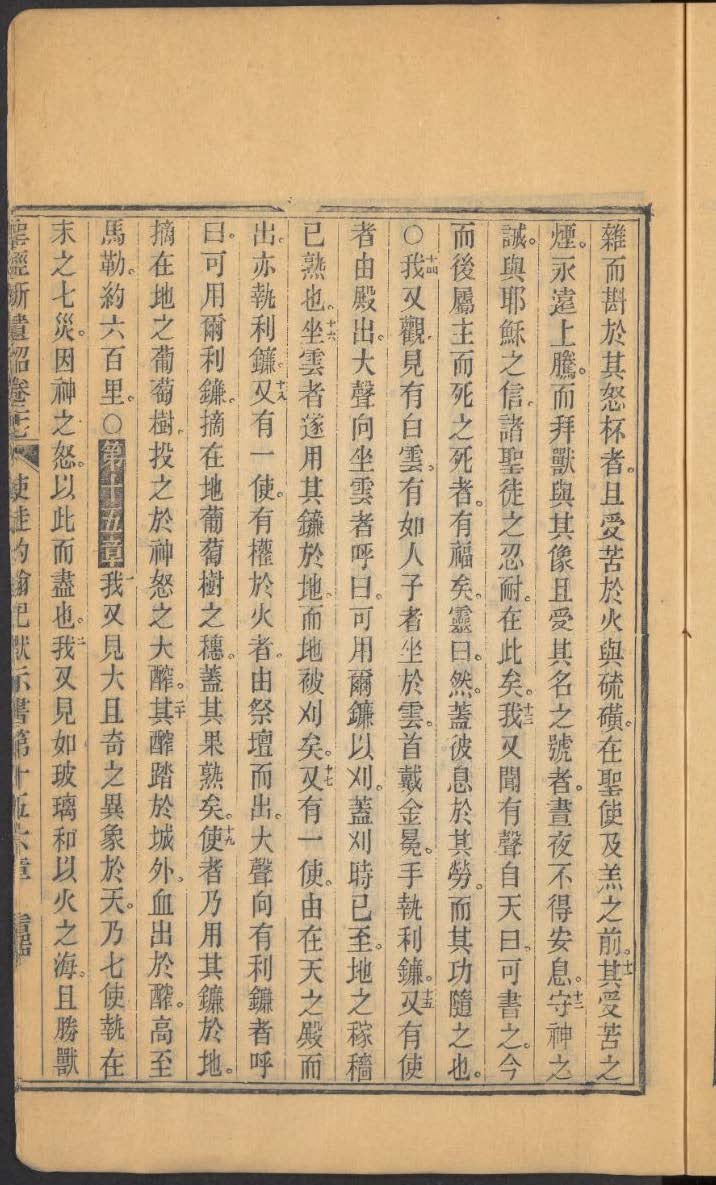 雜而斟於其怒杯者。且受苦於火與硫磺。在聖使及羔之前。十一其受苦之
煙。永遠上騰。而拜獸與其像且受其名之號者。晝夜不得安息。十二守神之
誡。與耶穌之信。諸聖徒之忍耐。在此矣。十三我又聞有聲自天曰。可書之。今
而後屬主而死之死者。有福矣。靈曰。然。蓋彼息於其勞。而其功隨之也。
〇十四我又觀。見有白雲。有如人子者坐於雲。首戴金冕。手執利鐮。十五又有使
者由殿出。大聲向坐雲者呼曰。可用爾鐮以刈。蓋刈時已至。地之稼穡
已熟也。十六坐雲者遂用其鐮於地。而地被刈矣。十七又有一使。由在天之殿而
出。亦執利鐮。十八又有一使。有權於火者。由祭壇而出。大聲向有利鐮者呼
曰。可用爾利鐮。摘在地葡萄樹之穗。蓋其果熟矣。十九使者乃用其鐮於地。
摘在地之葡萄樹。投之於神怒之大醡。二十其醡踏於城外。血出於醡。高至
馬勒。約六百里。〇第十五章一我又見大且奇之異象於天。乃七使執在
末之七災。因神之怒。以此而盡也。二我又見如玻璃和以火之海。且勝獸
聖經新遺詔卷七 使徒約翰記默示書第十五六章